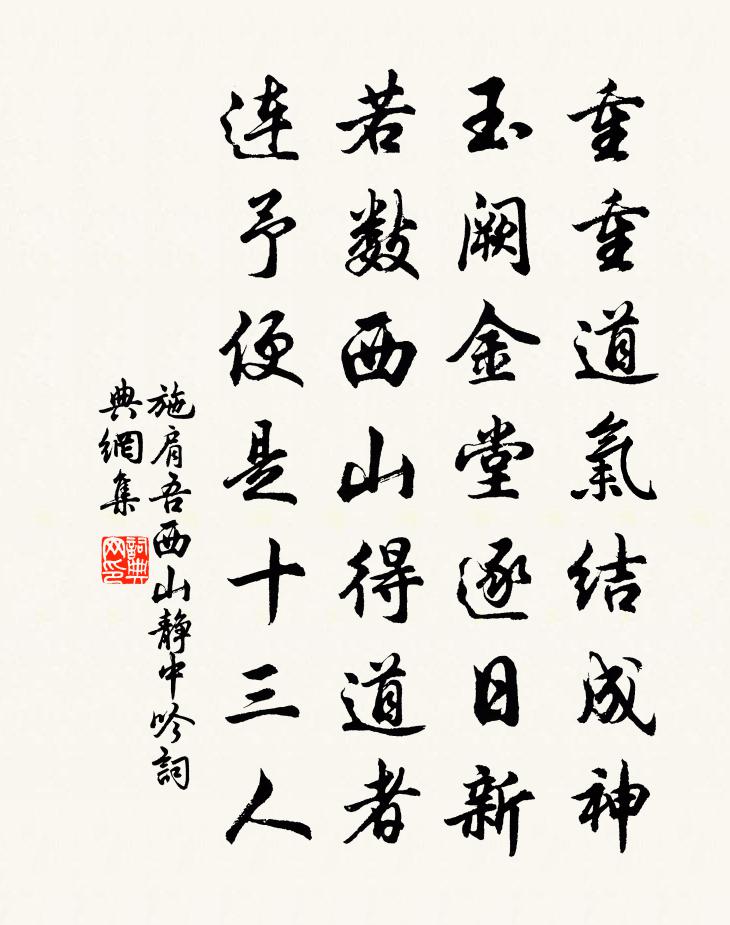 重重道氣結成神
玉阙金堂逐日新
若數西山得道者
連予便是十三人
施肩吾西山靜中吟詞
典網集
詞典
网印